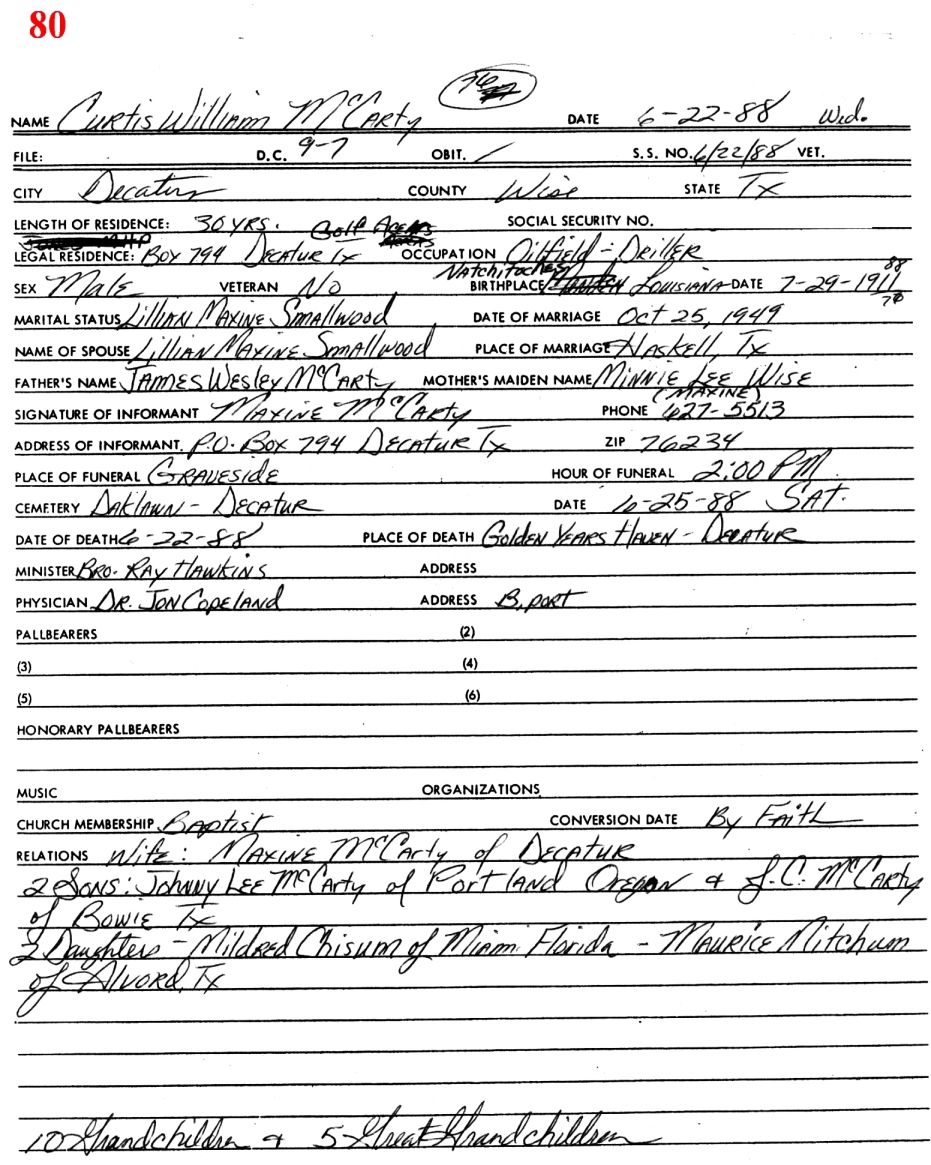 80
76
NAME Curtis William McCarty DATE 6-22-88 Wed.
FILE: D.C. 9-7 OBIT. / S.S. NO. 6/22/88 VET.
CITY Decatur COUNTY Wise STATE Tx
LENGTH OF RESIDENCE: 30 YRS. Golf Acers SOCIAL SECURITY NO.
LEGAL RESIDENCE: Box 794 Decatur Tx OCCUPATION Oilfield - Driller
Natchitoches 88
SEX Male VETERAN No BIRTHPLACE Louisiana DATE 7-29-1911
76
MARITAL STATUS Lillian Maxine Smallwood DATE OF MARRIAGE Oct 25, 1949
NAME OF SPOUSE Lillian Maxine Smallwood PLACE OF MARRIAGE Haskell, Tx
FATHER'S NAME James Wesley McCarty MOTHER'S MAIDEN NAME Minnie Lee Wise
(Maxine)
SIGNATURE OF INFORMANT Maxine McCarty PHONE 627-5513
ADDRESS OF INFORMANT P.O. Box 794 Decatur Tx ZIP 76234
PLACE OF FUNERAL Graveside HOUR OF FUNERAL 2:00 PM
CEMETERY Oaklawn - Decatur DATE 6-25-88 SAT.
DATE OF DEATH 6-22-88 PLACE OF DEATH Golden Years Haven - Decatur
MINISTER Bro. Ray Hawkins ADDRESS
PHYSICIAN Dr. Jon Copeland ADDRESS B.port
PALLBEARERS (2)
(3) (4)
(5) (6)
HONORARY PALLBEARERS
MUSIC ORGANIZATIONS
CHURCH MEMBERSHIP Baptist CONVERSION DATE By Faith
RELATIONS Wife: Maxine McCarty of Decatur
2 Sons: Johnny Lee McCarty of Portland Oregon & J.C. McCarty
of Bowie Tx
2 Daughters - Mildred Chisum of Miami Florida - Maurice Mitchum
of Alvord, Tx
10 Grandchildren & 5 Great Grandchildren